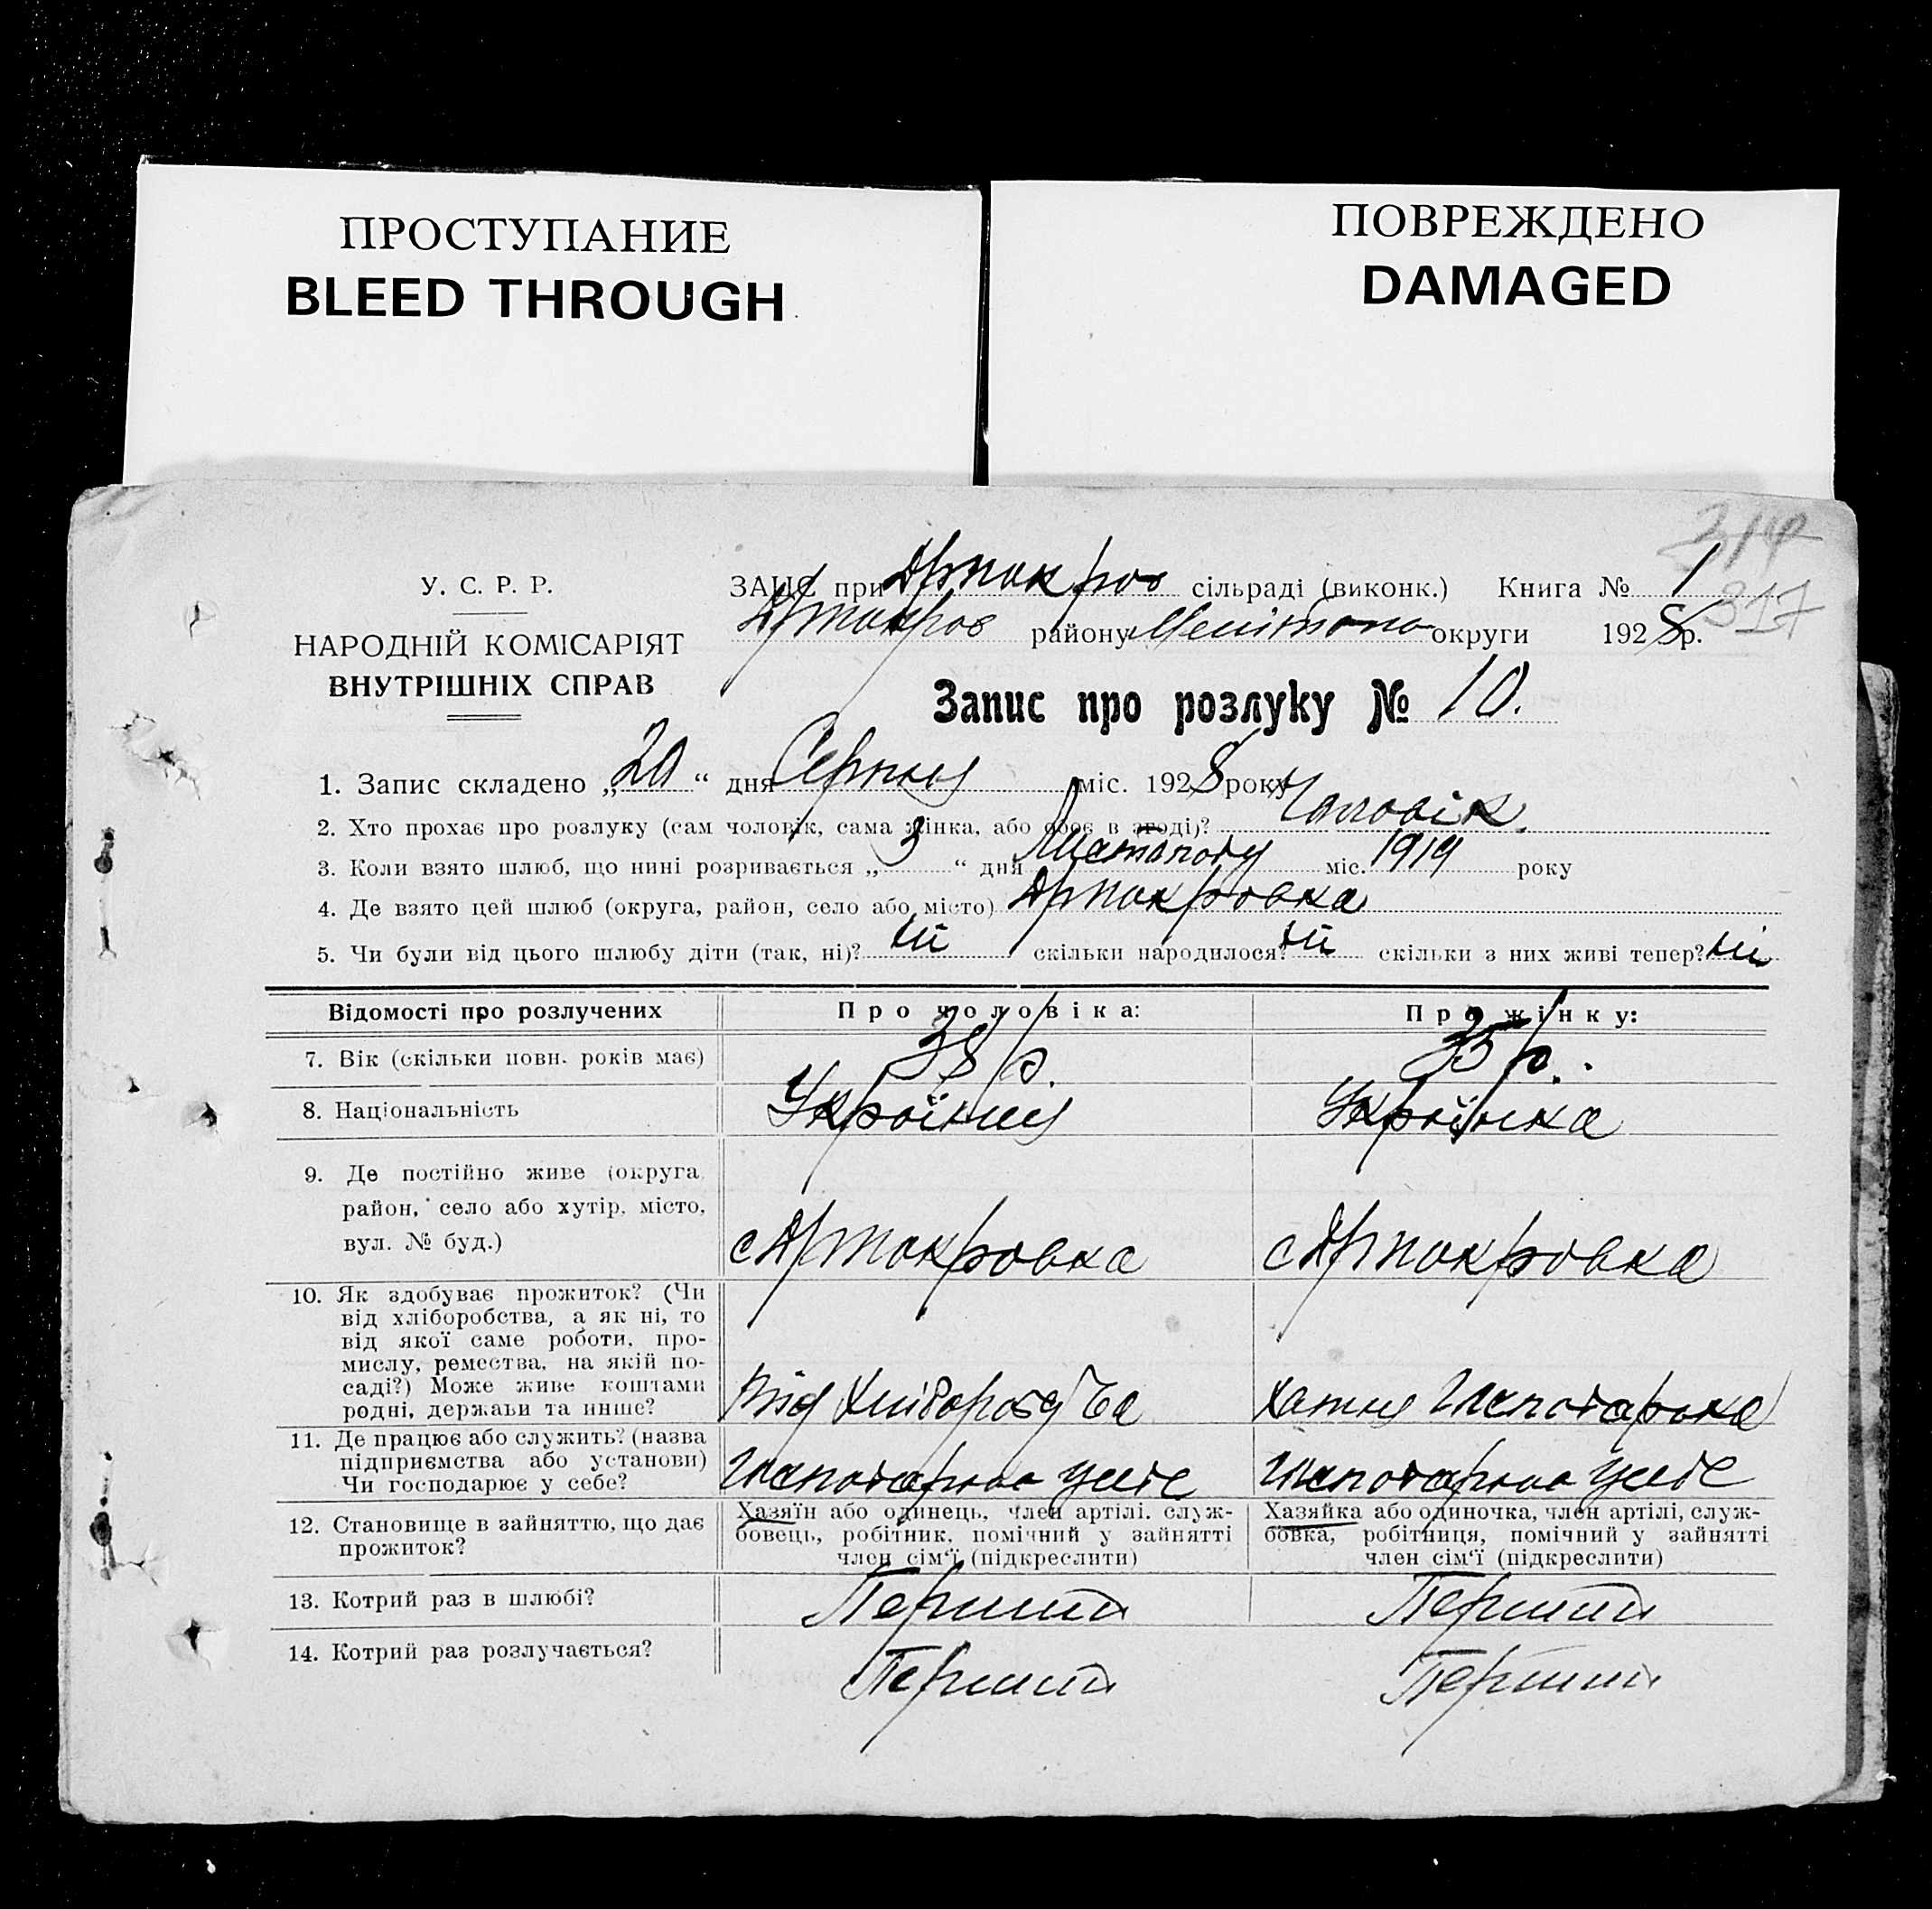 ПРОСТУПАНИЕ
BLEED THROUGH
ПОВРЕЖДЕНО
DAMAGED
314
317
У. С. Р. Р.
НАРОДНІЙ КОМІСАРІЯТ
ВНУТРІШНІХ СПРАВ
ЗАЦС при сільраді (виконк.) Книга № 1
району округи 1928 р.
Запис про розлуку № 10.
1. Запис складено „20“ дня Серпня міс. 1928 року
2. Хто прохає про розлуку (сам чоловік, сама жінка, або обоє в згоді)? Чоловік.
3. Коли взято шлюб, що нині розривається „3“ дня Листопаду міс. 1919 року
4. Де взято цей шлюб (округа, район, село або місто)
5. Чи були від цього шлюбу діти (так, ні)? ні скільки народилося? ні скільки з них живі тепер? ні
Відомості про розлучених
Про чоловіка:
Про жінку:
7. Вік (скільки повн. років має)
38 р.
35 р.
8. Національність
Українец
Українка
9. Де постійно живе (округа, район, село або хутір, місто, вул. № буд.)
10. Як здобуває прожиток? (Чи
від хліборобства, а як ні, то
від якої саме роботи, про-
мислу, ремества, на якій по-
саді?) Може живе коштами
родні, держави та инше?
Від
Хатня
11. Де працює або служить? (назва
підприємства або установи)
Чи господарює у себе?
12. Становище в зайняттю, що дає
прожиток?
Хазяїн або одинець, член артілі, служ-
бовець, робітник, помічний у зайнятті
член сім'ї (підкреслити)
Хазяйка або одиночка, член артілі, служ-
бовка, робітниця, помічний у зайнятті
член сім'ї (підкреслити)
13. Котрий раз в шлюбі?
Перший
Перший
14. Котрий раз розлучається?
Перший
Перший